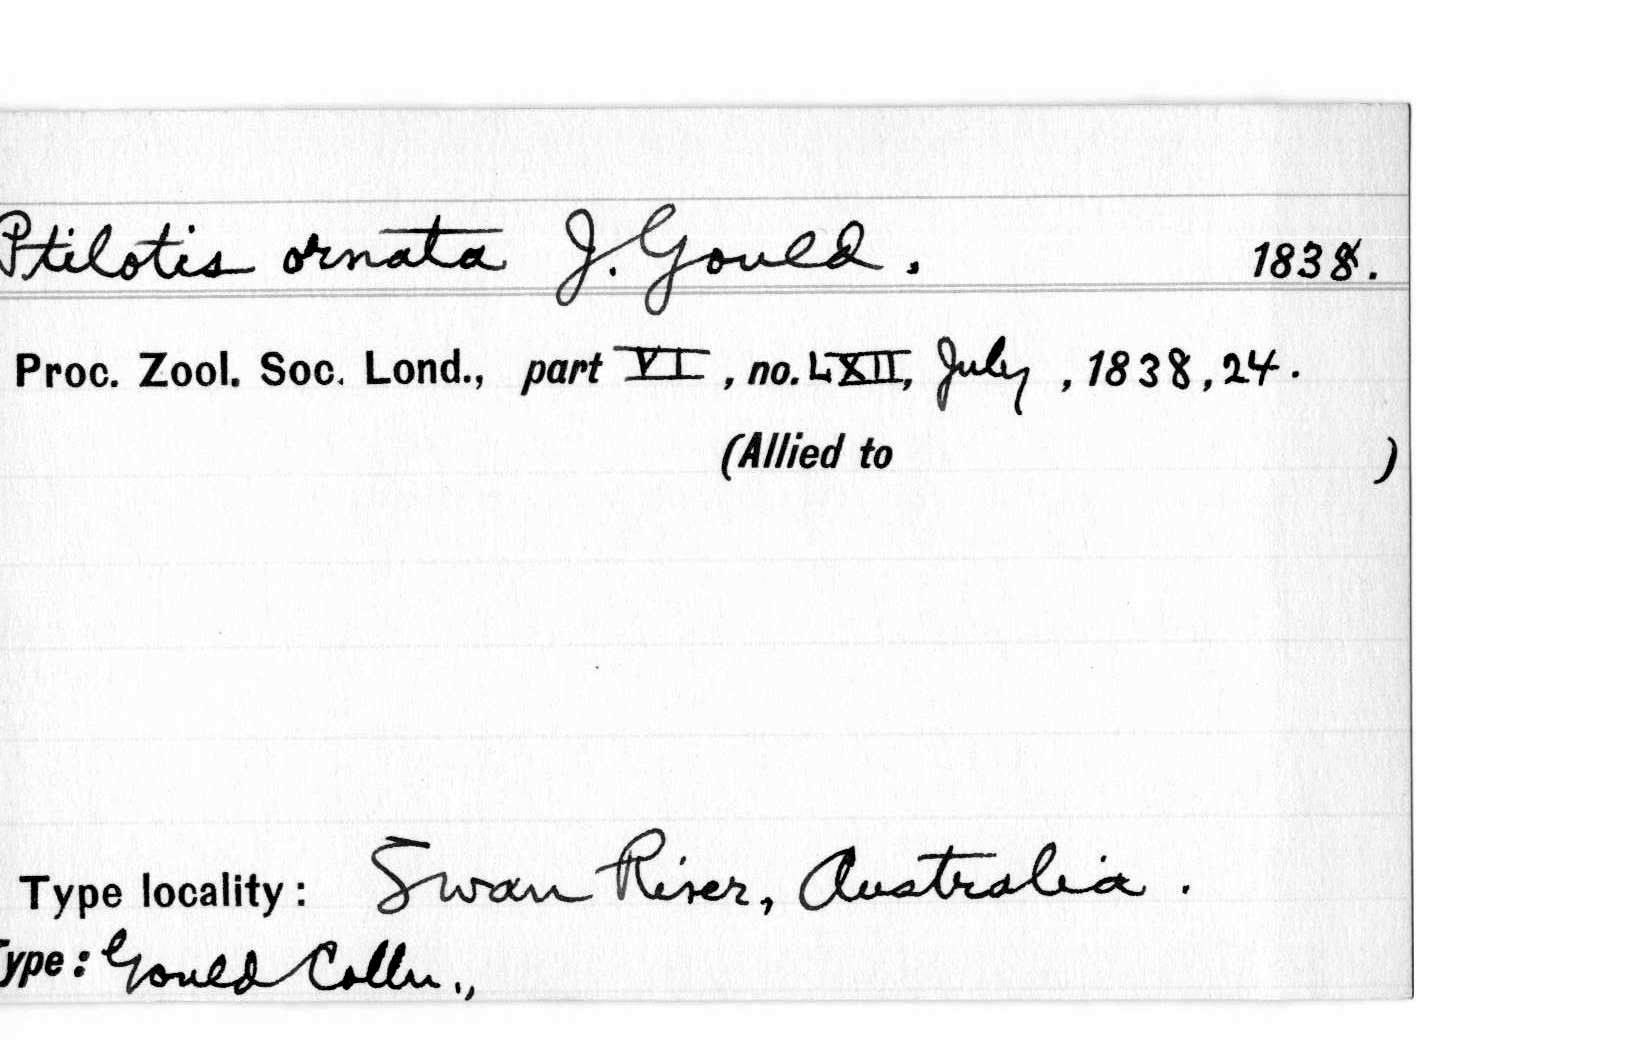 Ptilotis ornata J. Gould, 1838.
Proc. Zool. Soc. Lond., part VI, no. LXII, July, 1838, 24.
(Allied to )
Type locality: Swan River, Australia.
Type: Gould Colln.,